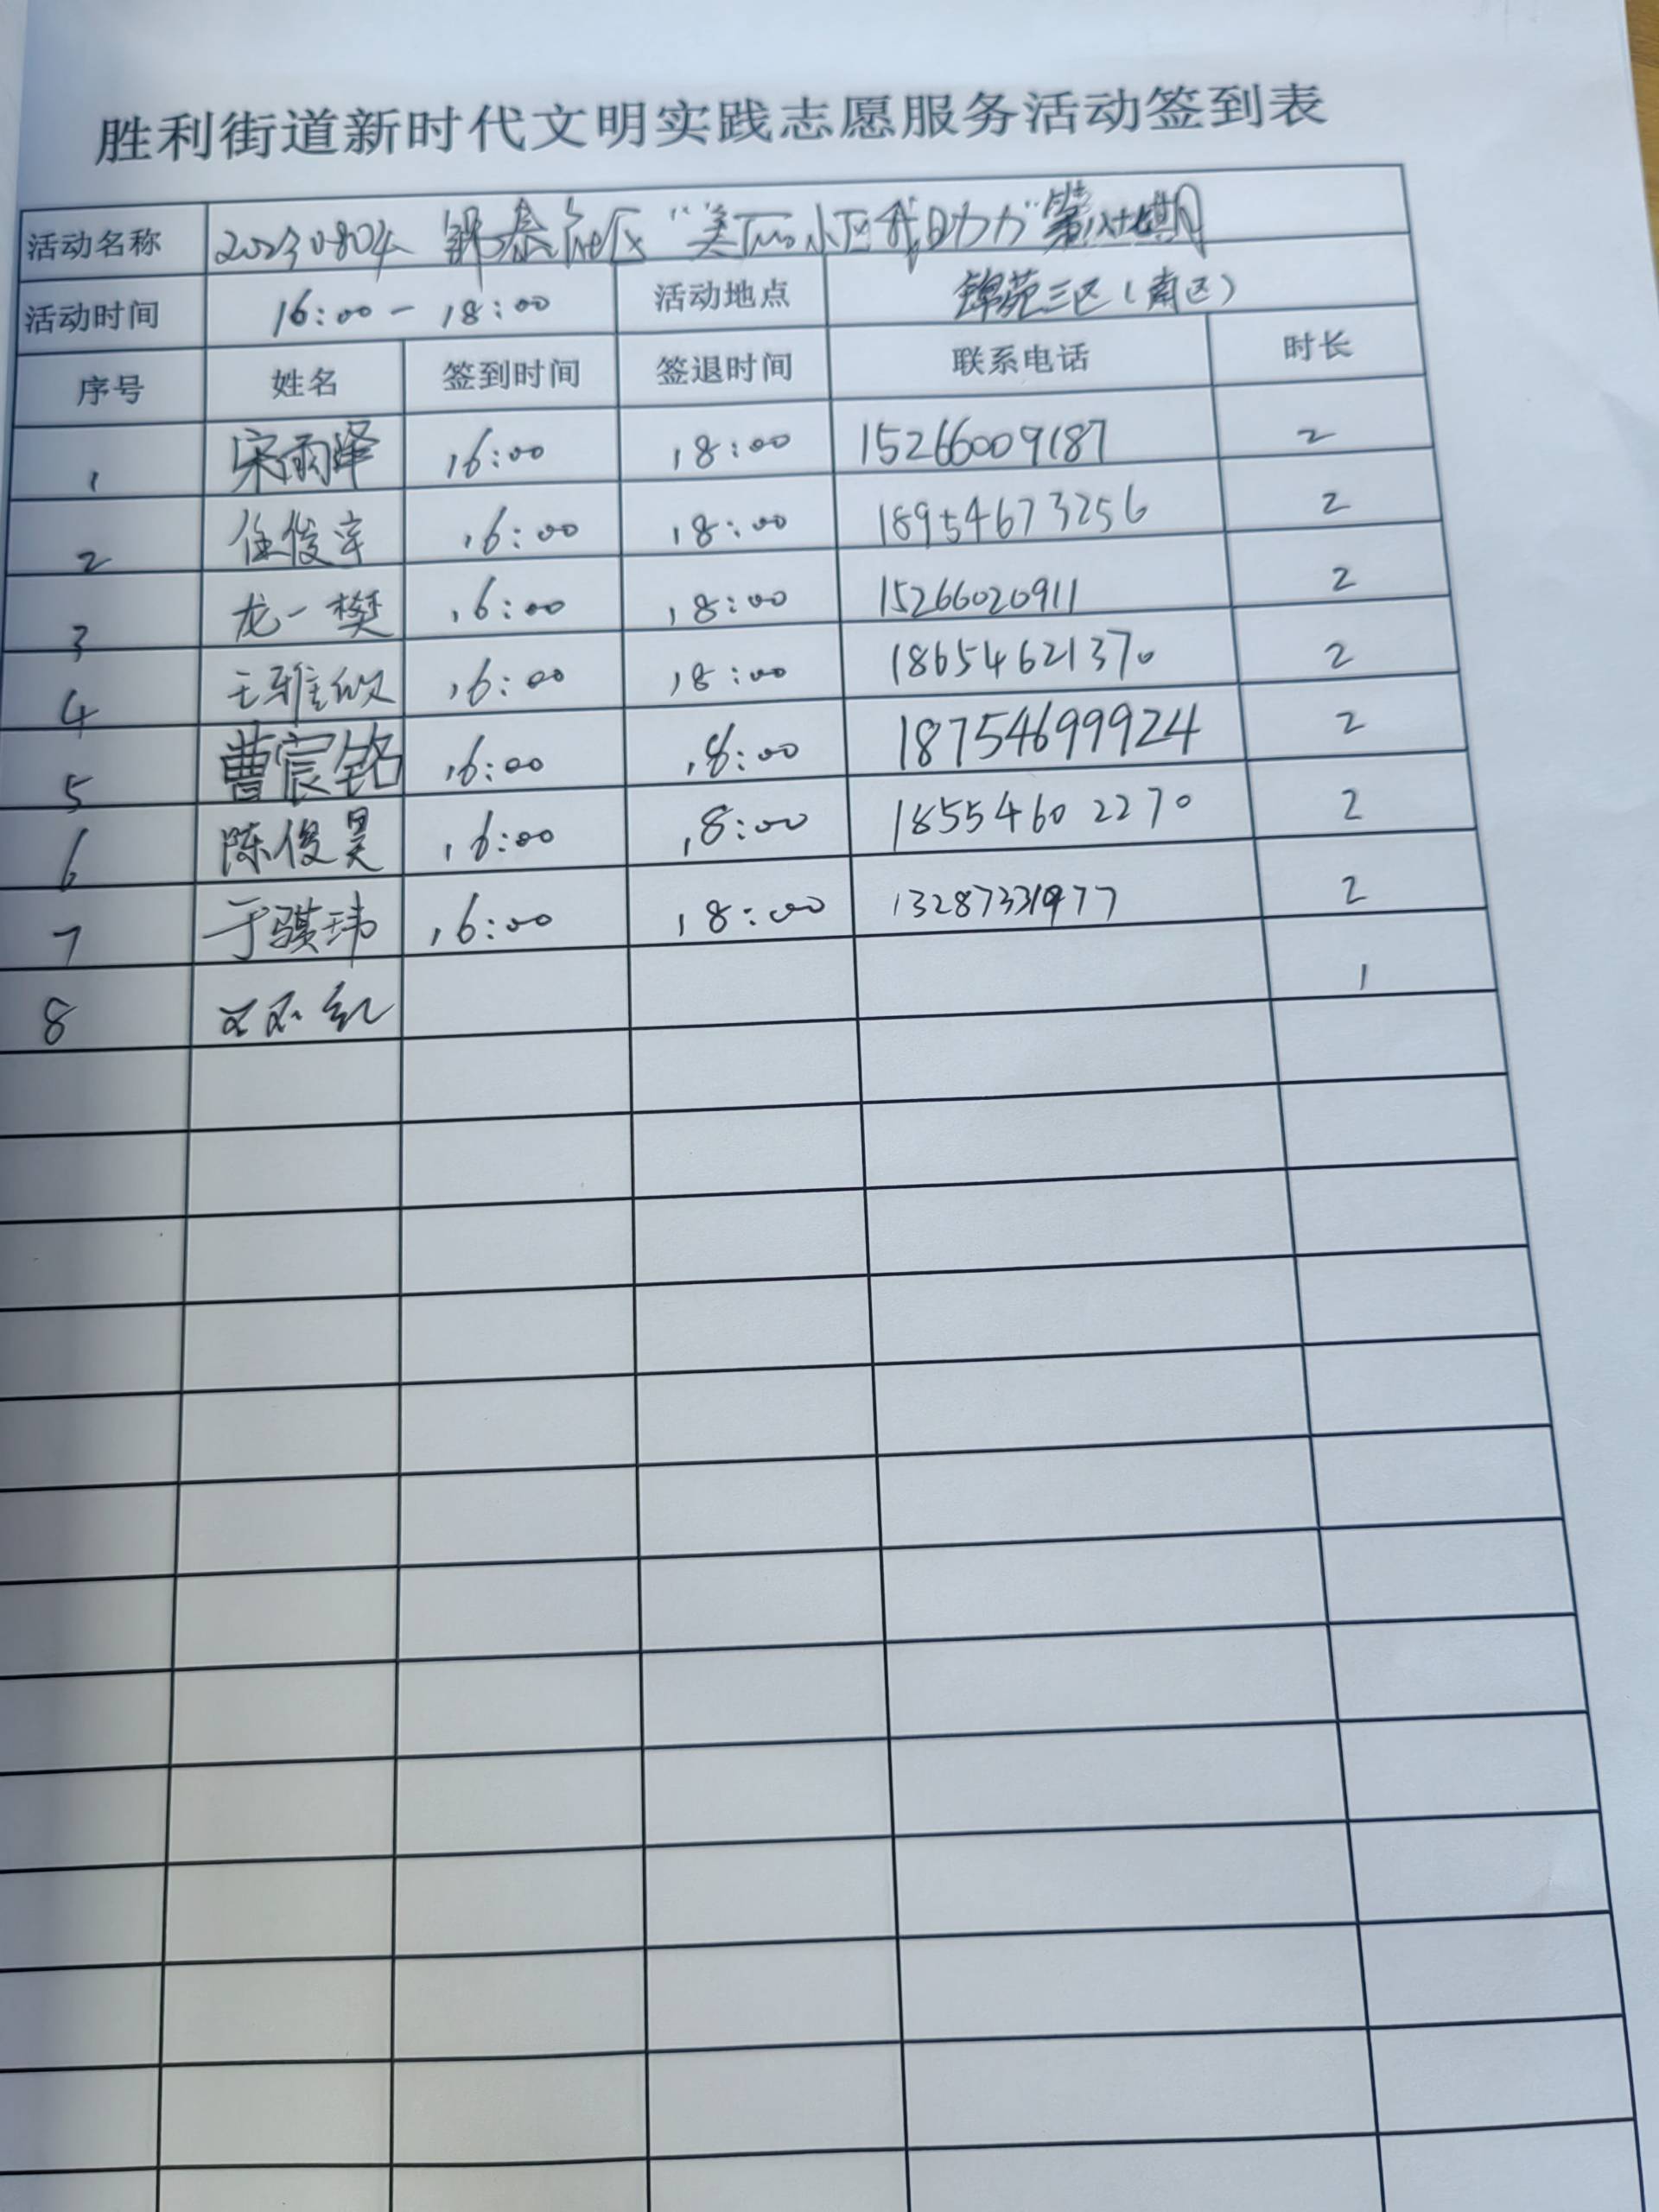 胜利街道新时代文明实践志愿服务活动签到表
活动名称 20230804 锦泰社区“美丽小区我助力”第八十七期
活动时间 16:00-18:00 活动地点 锦苑三区(南区)
序号 姓名 签到时间 签退时间 联系电话 时长
1 宋雨泽 16:00 18:00 15266009187 2
2 任俊宇 16:00 18:00 18954673256 2
3 龙一樊 16:00 18:00 15266020911 2
4 王雅欣 16:00 18:00 18654621370 2
5 曹宸铭 16:00 18:00 18754699924 2
6 陈俊昊 16:00 18:00 18554602270 2
7 于骐玮 16:00 18:00 13287331977 2
8 1